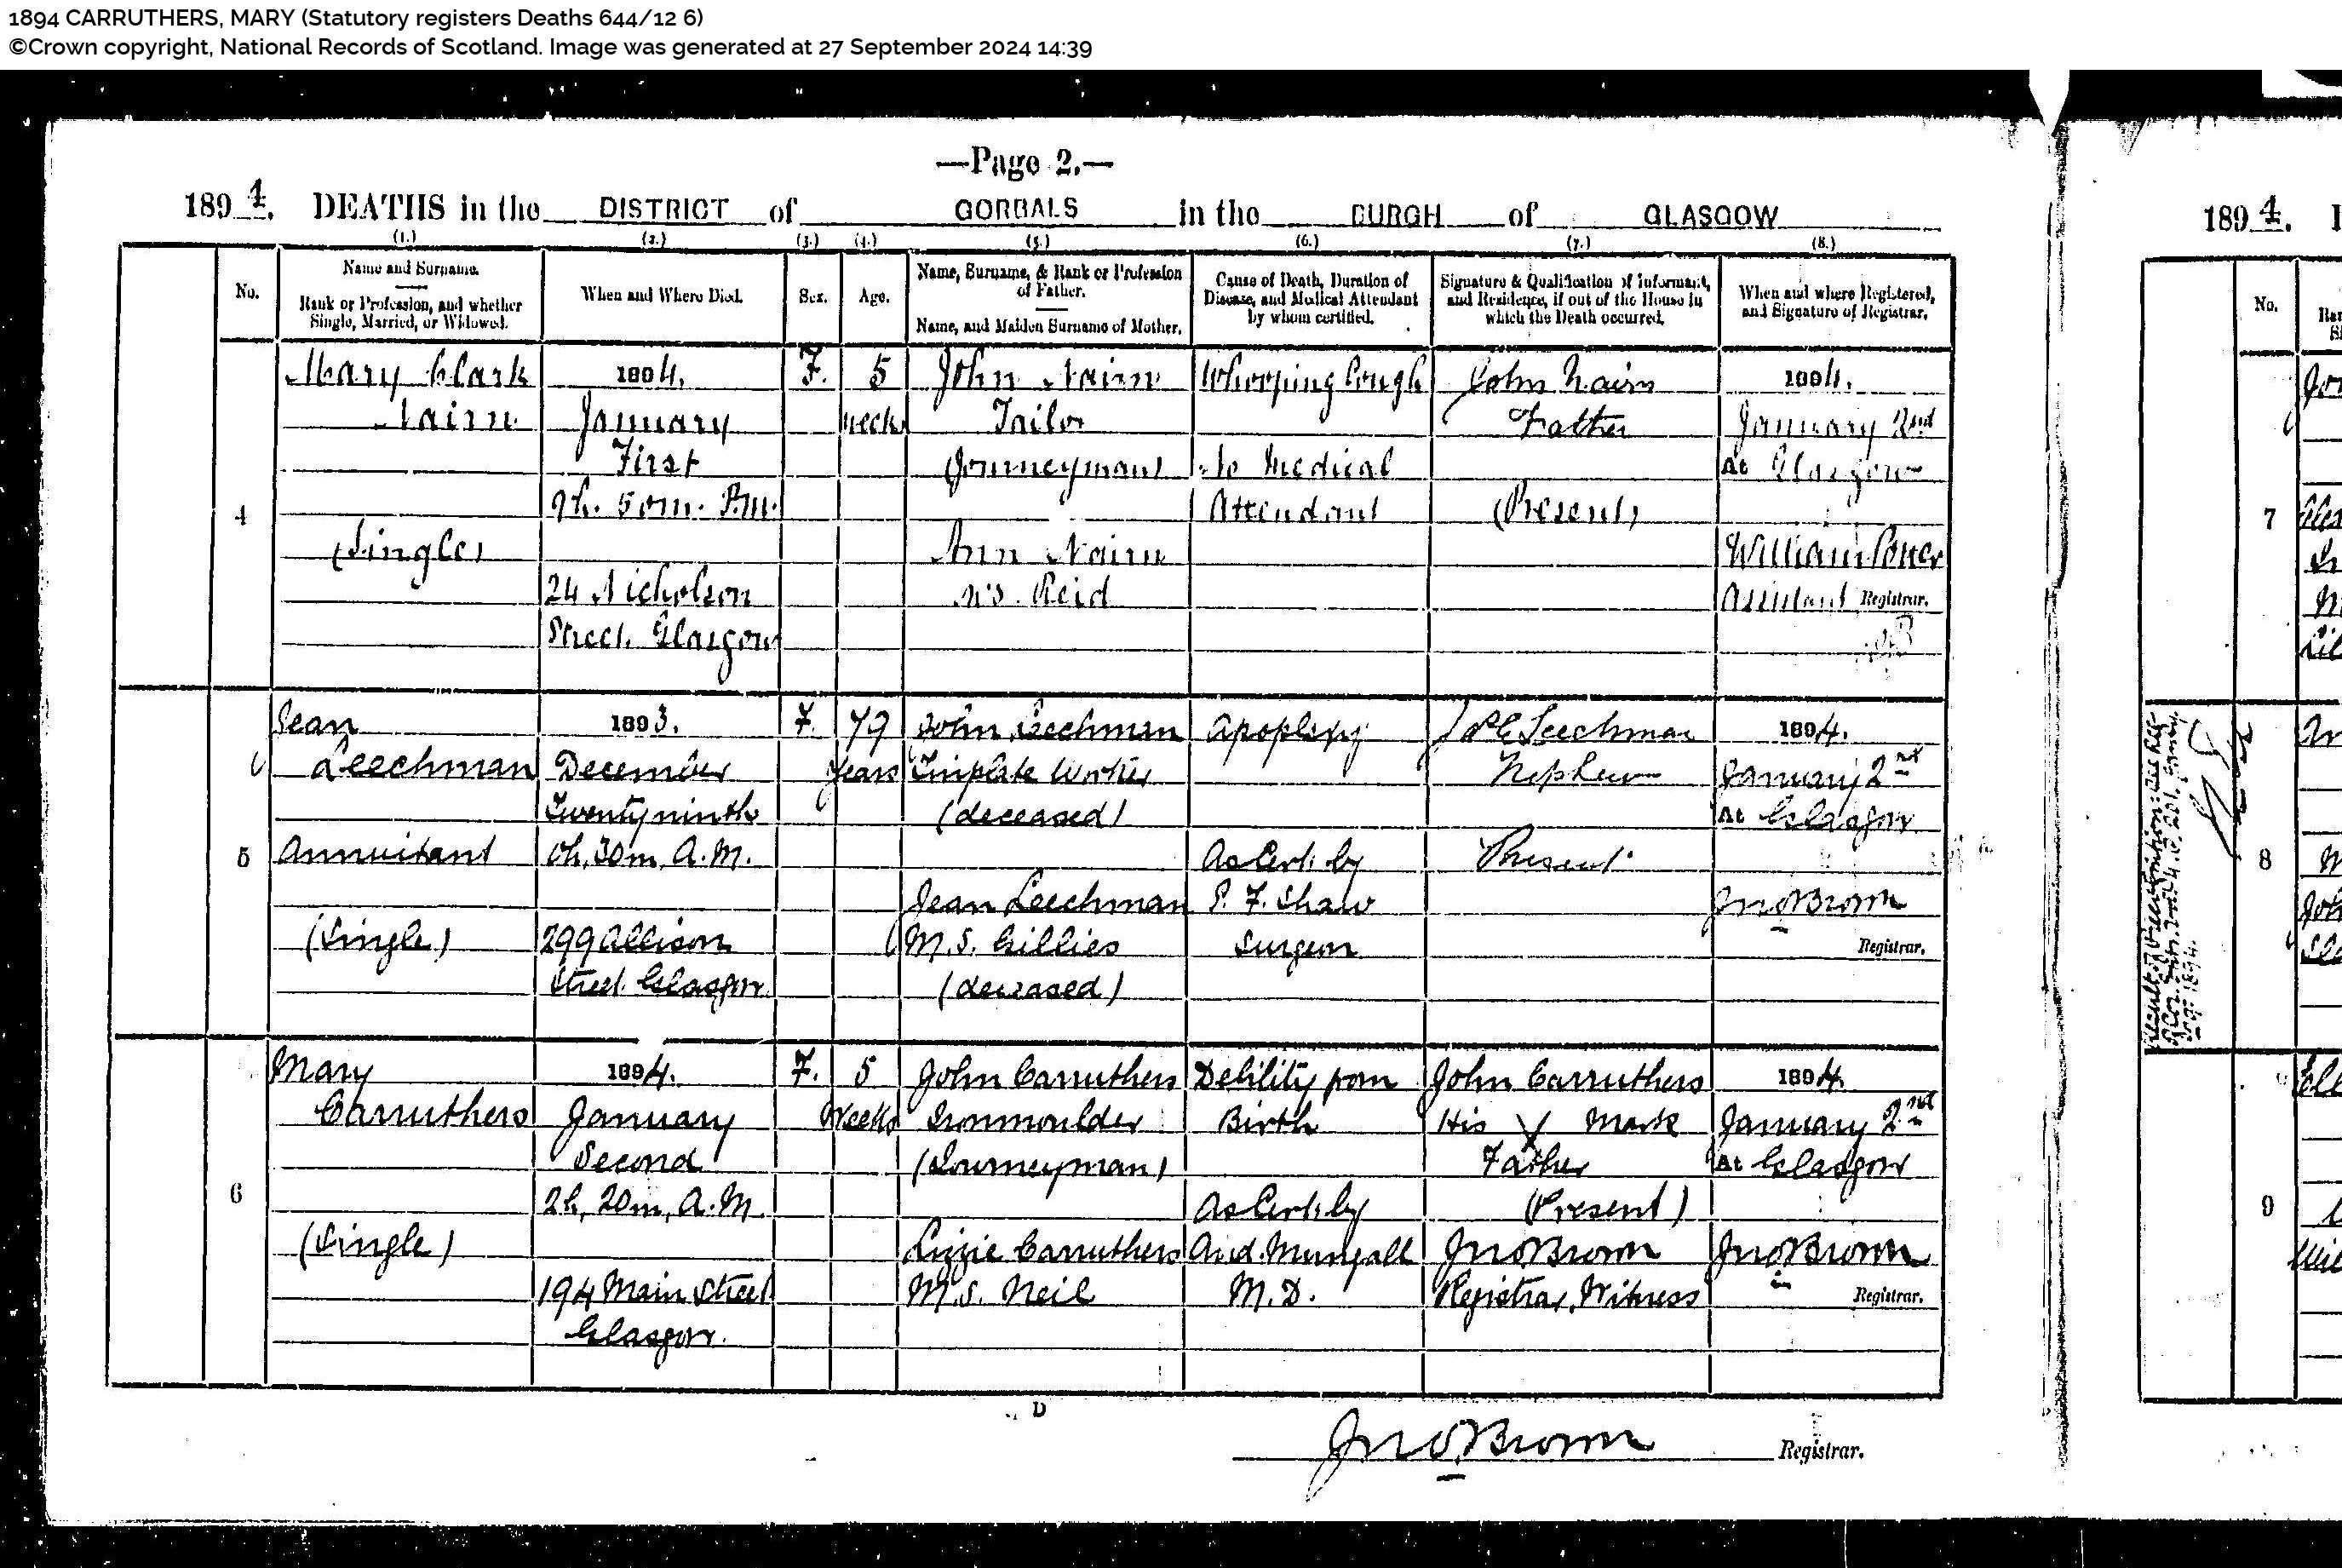 1894 CARRUTHERS, MARY (Statutory registers Deaths 644/12 6)
©Crown copyright, National Records of Scotland. Image was generated at 27 September 2024 14:39
—Page 2.—
1894. DEATHS in the DISTRICT of GORBALS in the BURGH of GLASGOW
(1.) (2.) (3.) (4.) (5.) (6.) (7.) (8.)
No.
Name and Surname.
Rank or Profession, and whether
Single, Married, or Widowed.
When and Where Died.
Sex.
Age.
Name, Surname, & Rank or Profession
of Father.
Name, and Maiden Surname of Mother.
Cause of Death, Duration of
Disease, and Medical Attendant
by whom certified.
Signature & Qualification of Informant,
and Residence, if out of the House in
which the Death occurred.
When and where Registered,
and Signature of Registrar.
4
Mary Clark
Nairn
(Single)
1894.
January
First
9h. 50m. P.M.
24 Nicholson
Street. Glasgow
F.
5
weeks
John Nairn
Tailor
(Journeyman)
Ann Nairn
M.S. Reid
Whooping Cough
No Medical
Attendant
John Nairn
Father
(Present)
1894.
January 2nd
At Glasgow
William
Assistant Registrar.
5
Jean
Leechman
Annuitant
(Single)
1893.
December
Twenty ninth
0h, 30m, A.M.
299 Allison
Street Glasgow
F.
79
years
John Leechman
Tinplate Worker
(deceased)
Jean Leechman
M.S. Gillies
(deceased)
Apoplexy
As Cert. by
P. F. Shaw
Surgeon
Leechman
Nephew
Present
1894.
January 2nd
At Glasgow
Jno Brown
Registrar.
6
Mary
Carruthers
(Single)
1894.
January
Second
2h, 20m, A.M.
194 Main Street
Glasgow.
F.
5
Weeks
John Carruthers
Ironmoulder
(Journeyman)
Lizzie Carruthers
M.S. Neil
Debility from
Birth
As Cert. by
And. Mungall
M.D.
John Carruthers
His X Mark
Father
(Present)
Jno Brown
Registrar, Witness
1894.
January 2nd
At Glasgow
Jno Brown
Registrar.
D
Jno Brown Registrar.
1894.
No.
7
8
9
1894.